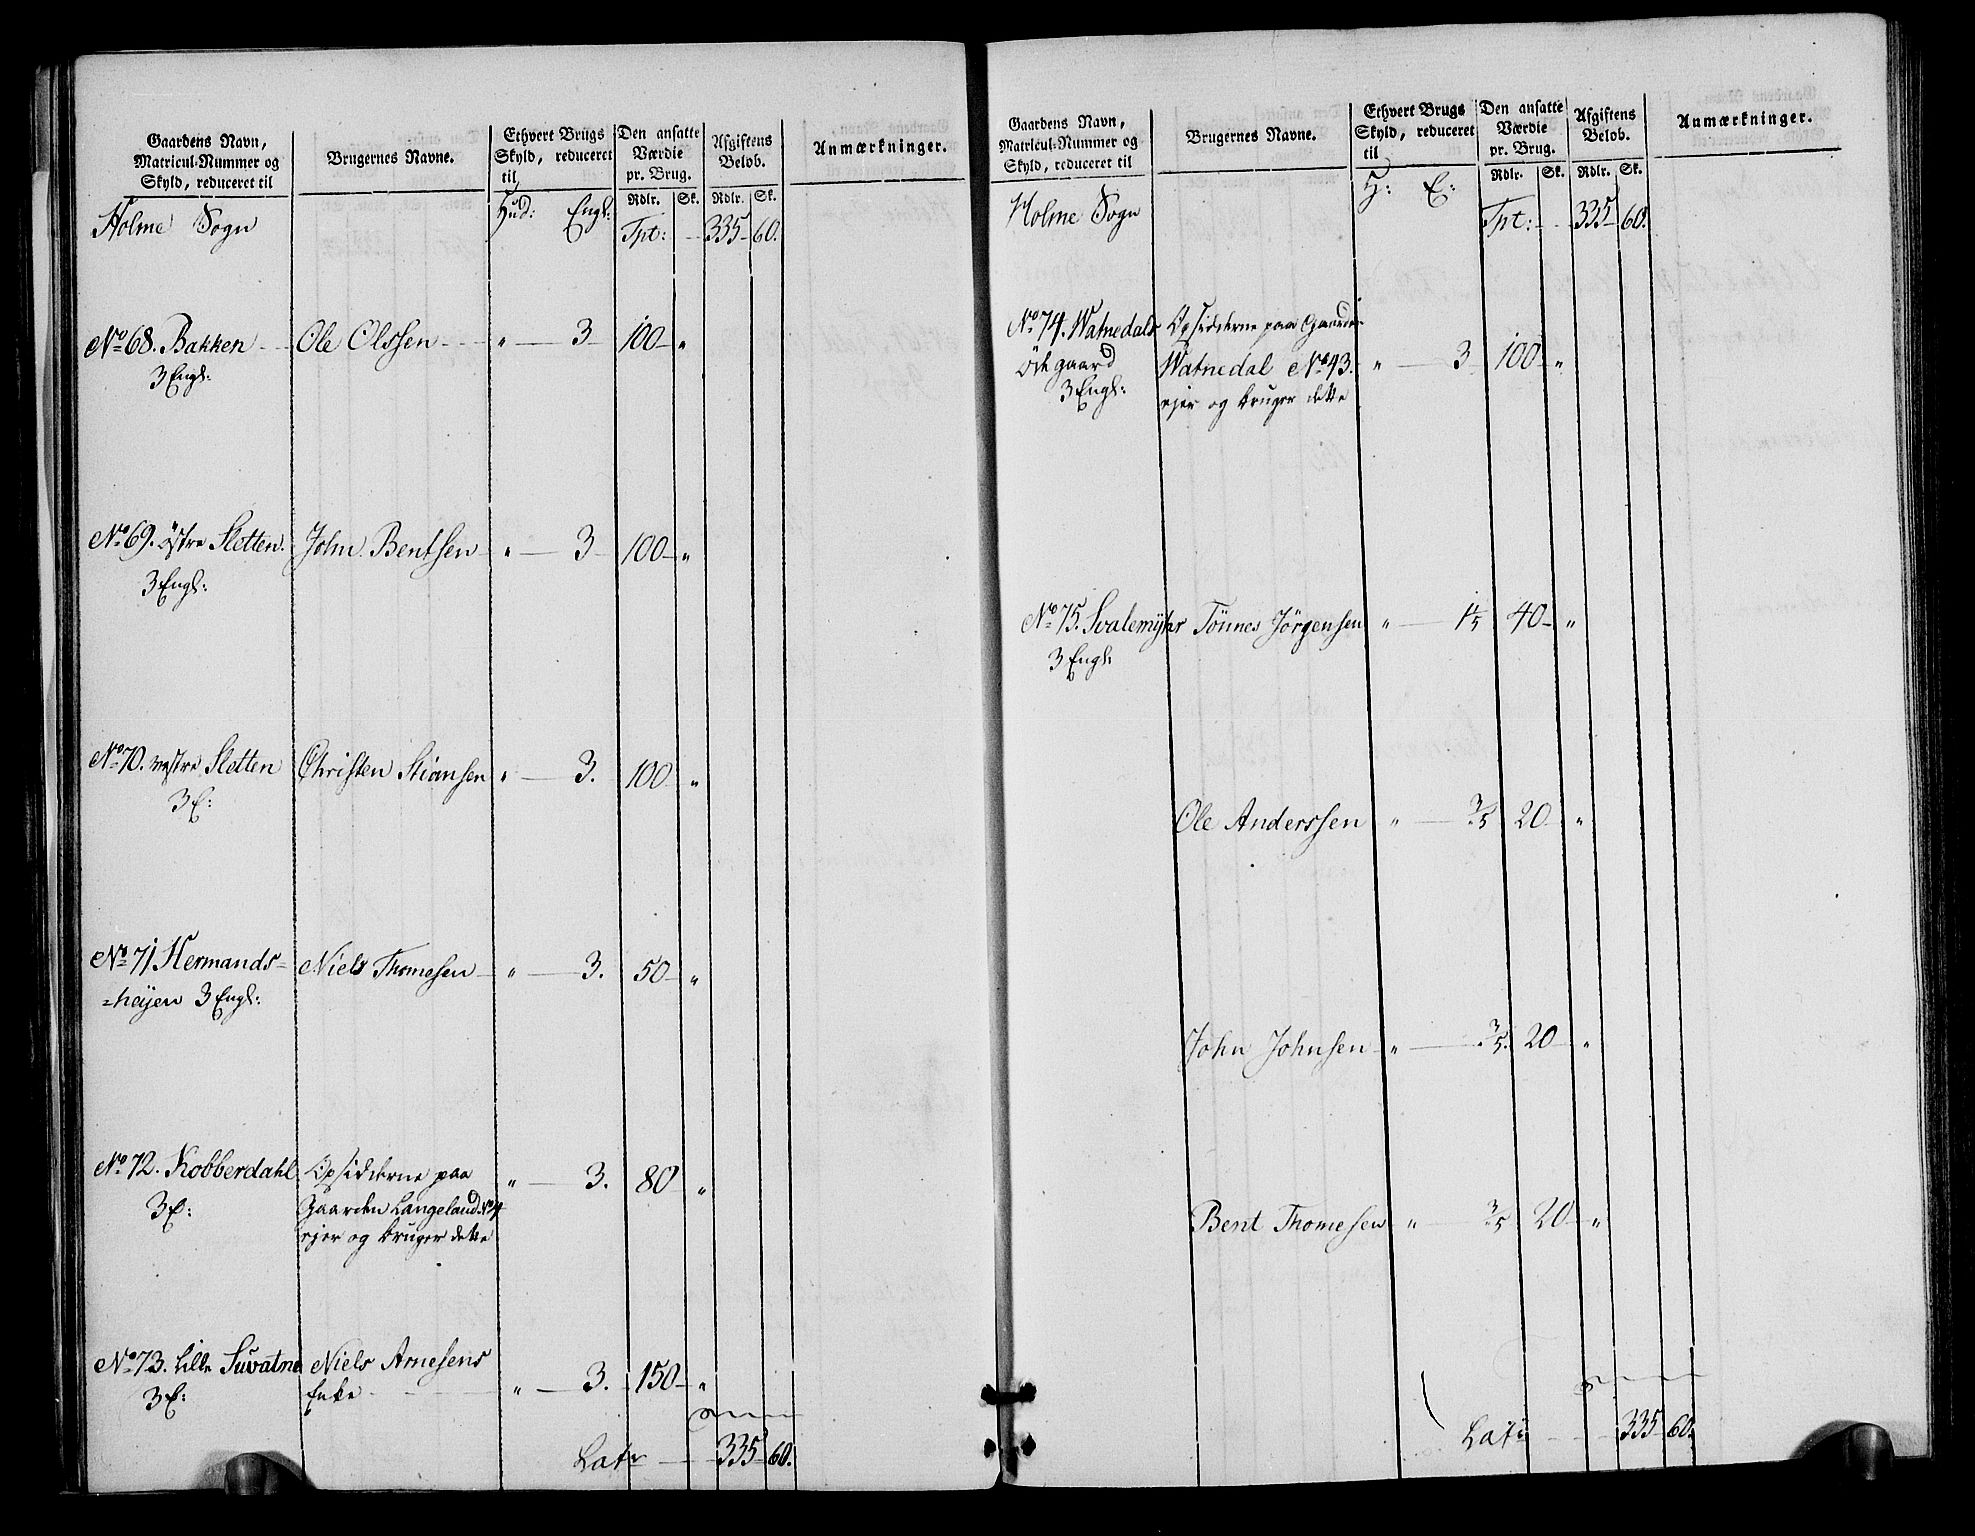 Gaardens Navn,
Matricul-Nummer og
Skyld, reduceret til
Brugernes Navne.
Ethvert Brugs
Skyld, reduceret
til
Den ansatte
Værdie
pr. Brug.
Afgiftens
Beløb.
Anmærkninger.
Rdlr. Sk. Rdlr. Sk.
Holme Sogn Hud: Engl: Tpt: 335 60.
No 68. Bakken Ole Olssen " 3 100 "
3 Engl:
No 69. østre Sletten. John Bentsen " 3 100 "
3 Engl:
No 70. vestre Sletten Christen Stiansen " 3. 100 "
3 E:
No 71 Hermands= Niels Thomesen " 3. 50 "
=heijen 3 Engl:
No 72. Kobberdahl Opsidderne paa " 3. 80 "
3 E: Gaarden Langeland No 4
ejer og bruger dette
No 73. Lille Suvatne Niels Arnesens
3 E: Enke " 3. 150 "
Lats 335 60.
Gaardens Navn,
Matricul-Nummer og
Skyld, reduceret til
Brugernes Navne.
Ethvert Brugs
Skyld, reduceret
til
Den ansatte
Værdie
pr. Brug.
Afgiftens
Beløb.
Anmærkninger.
Rdlr. Sk. Rdlr. Sk.
Holme Sogn H: E: Tpt: 335 60.
No 74. Watnedals Opsidderne paa Gaarden
Öde gaard Watnedal No 43. " 3 100 "
3 Engl: ejer og bruger dette
No 75. Svalemyhr Tönnes Jörgensen " 1 1/5 40 "
3 Engl:
Ole Anderssen " 3/5 20 "
John Johnsen " 3/5 20 "
Bent Thomesen " 3/5 20 "
Lats 335 60.